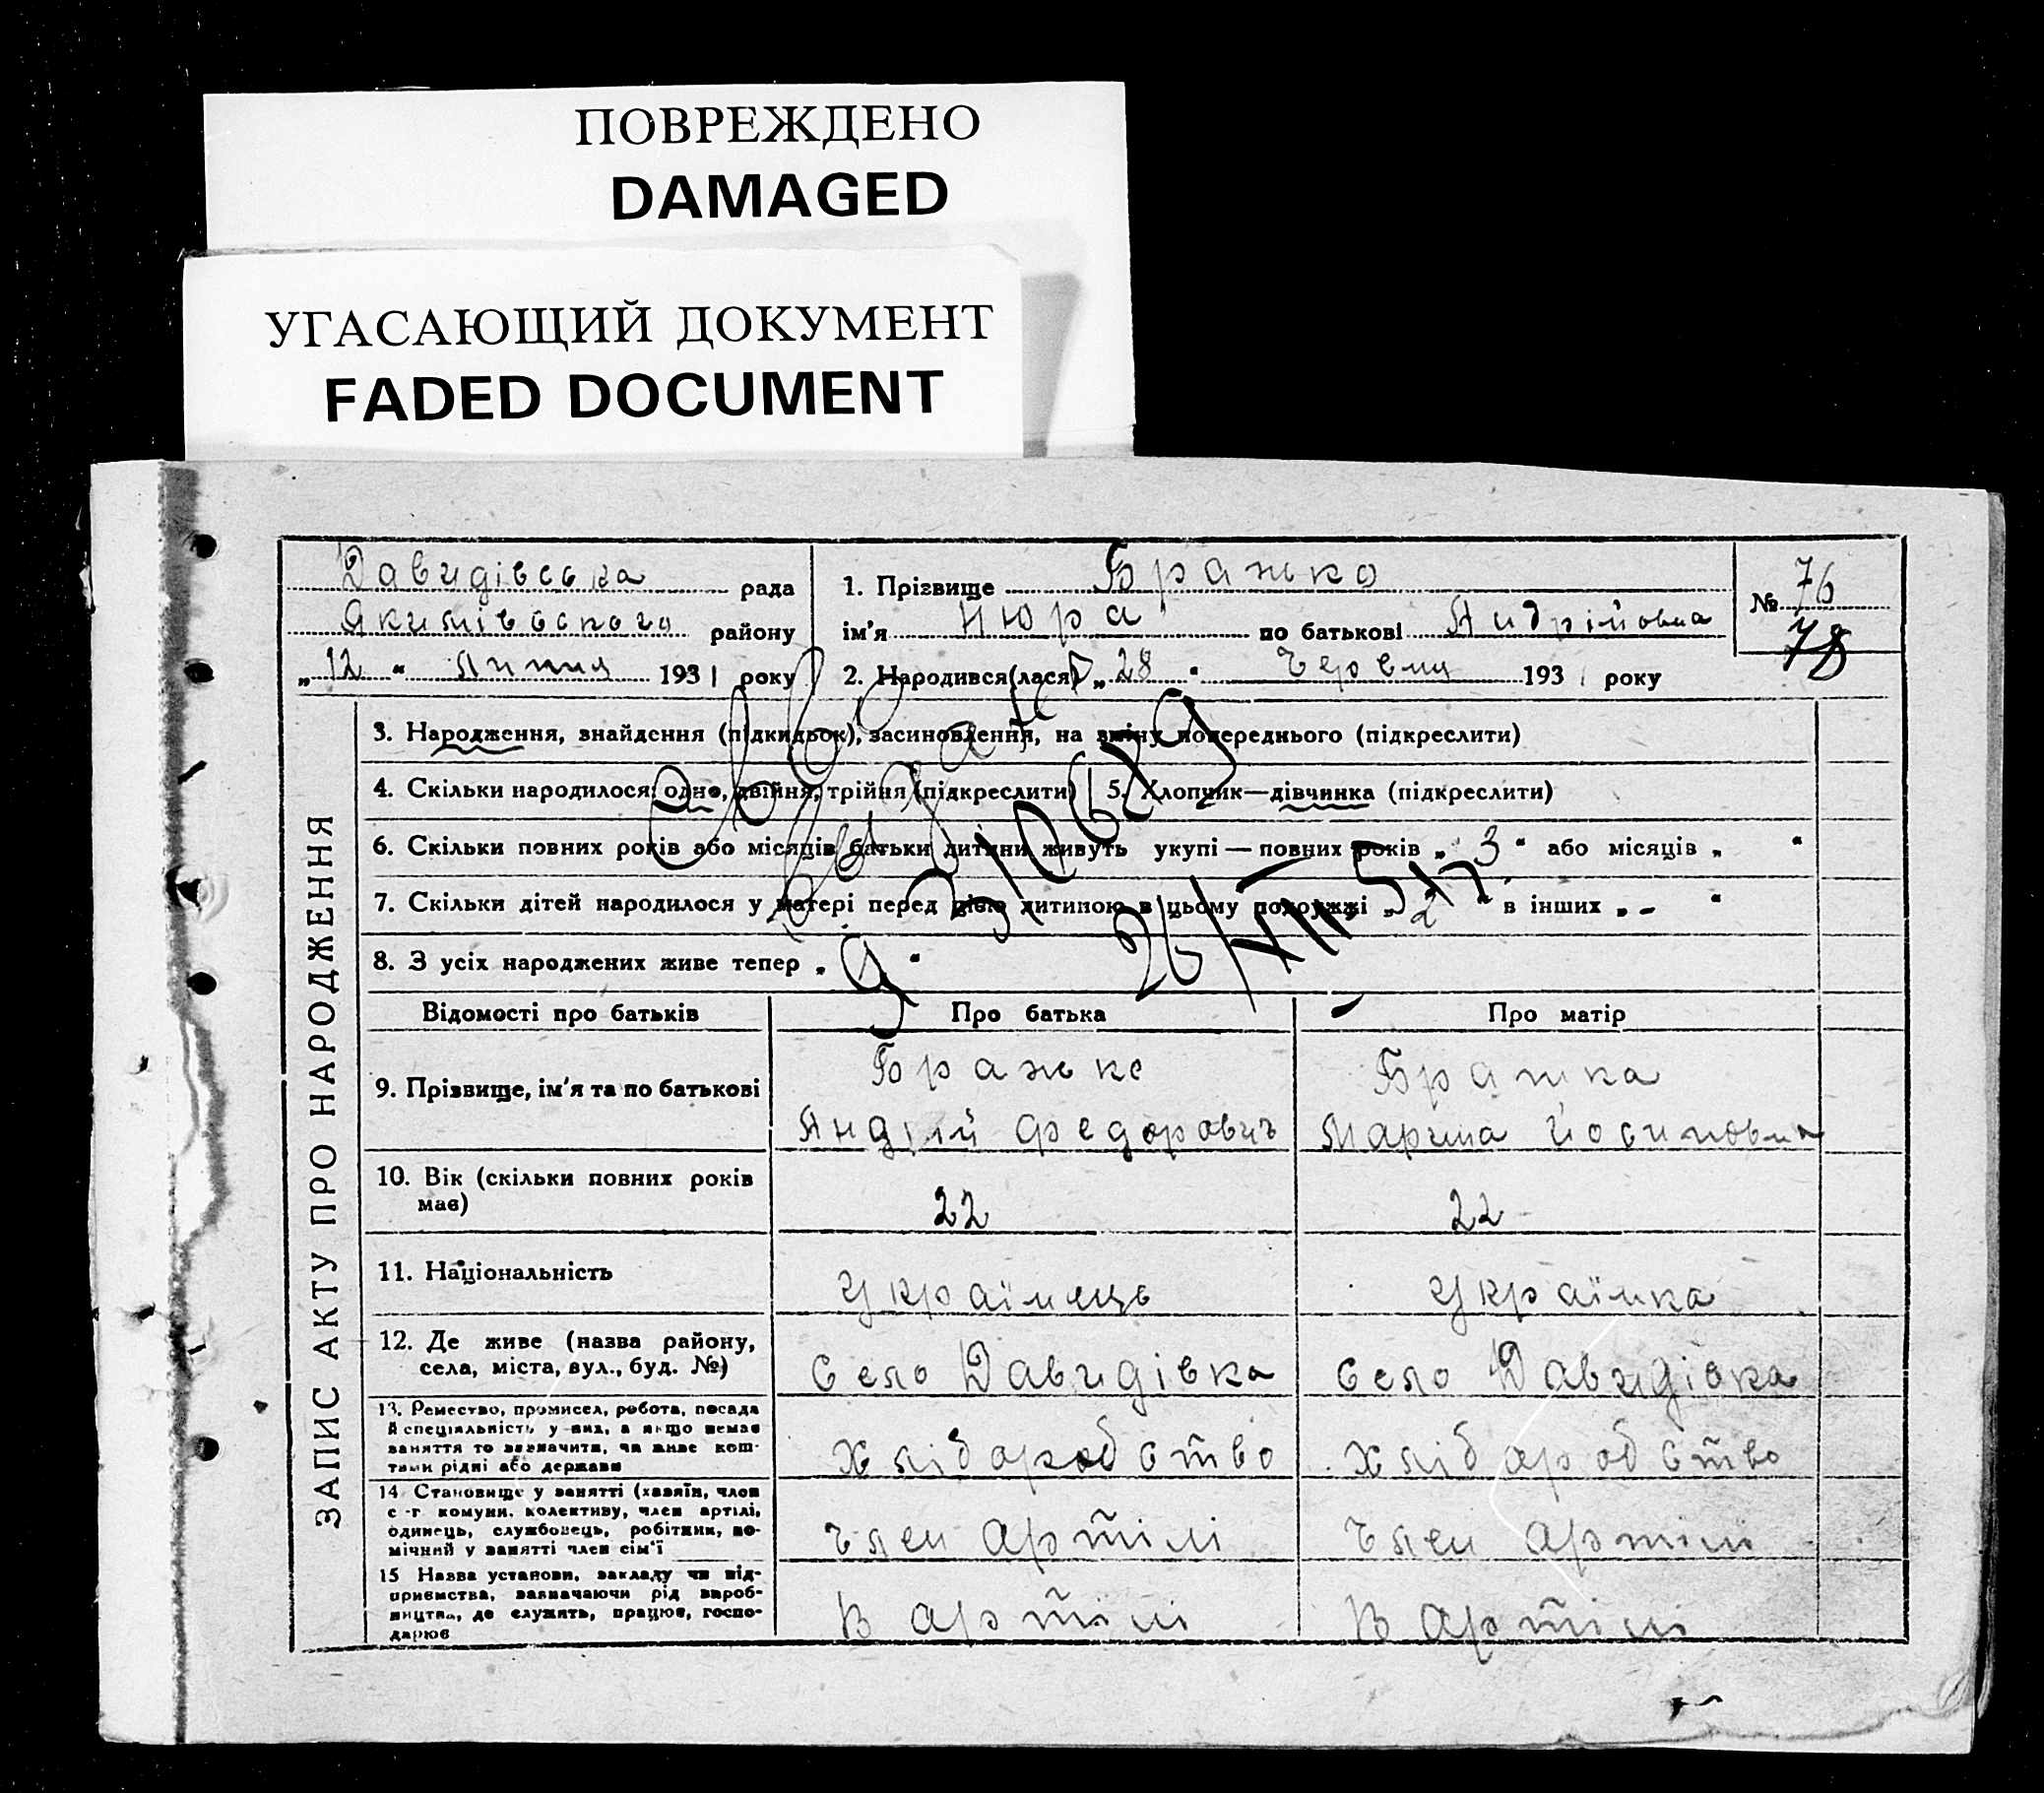 ПОВРЕЖДЕНО
DAMAGED
УГАСАЮЩИЙ ДОКУМЕНТ
FADED DOCUMENT
Давидівська рада
Якимівського району
„12“ липня 1931 року
1. Прізвище Бражко
ім'я Нюра по батькові Андрійовна
№ 76
78
2. Народився(лася) „28“ Червня 1931 року
ЗАПИС АКТУ ПРО НАРОДЖЕННЯ
3. Народження, знайдення (підкидьок), засиновлення, на зміну попереднього (підкреслити)
4. Скільки народилося: одно, двійня, трійня (підкреслити) 5. Хлопчик—дівчинка (підкреслити)
6. Скільки повних років або місяців батьки дитини живуть укупі — повних років „3“ або місяців „ “
7. Скільки дітей народилося у матері перед цією дитиною в цьому подружжі „2“ в інших „-“
8. З усіх народжених живе тепер „ “
Відомості про батьків Про батька Про матір
9. Прізвище, ім'я та по батькові
Бражко
Андрій Федорович
Бражка
Марина Йосиповна
10. Вік (скільки повних років
має)
22 22
11. Національність
Українець Українка
12. Де живе (назва району,
села, міста, вул., буд. №)
Село Давидівка Село Давидівка
13. Ремество, промисел, робота, посада
й спеціяльність у них, а якщо немає
заняття то зазначити, чи живе кош-
тами рідні або держави
хлібаробство хлібаробство
14 Становище у занятті (хазяїн, член
с-г комуни, колективу, член артілі,
одинець, службовець, робітник, по-
мічний у занятті член сім'ї
член артілі член артілі
15 Назва установи, закладу чи під-
приємства, зазначаючи рід вироб-
ництва, де служить, працює, госпо-
дарює
В артілі В артілі